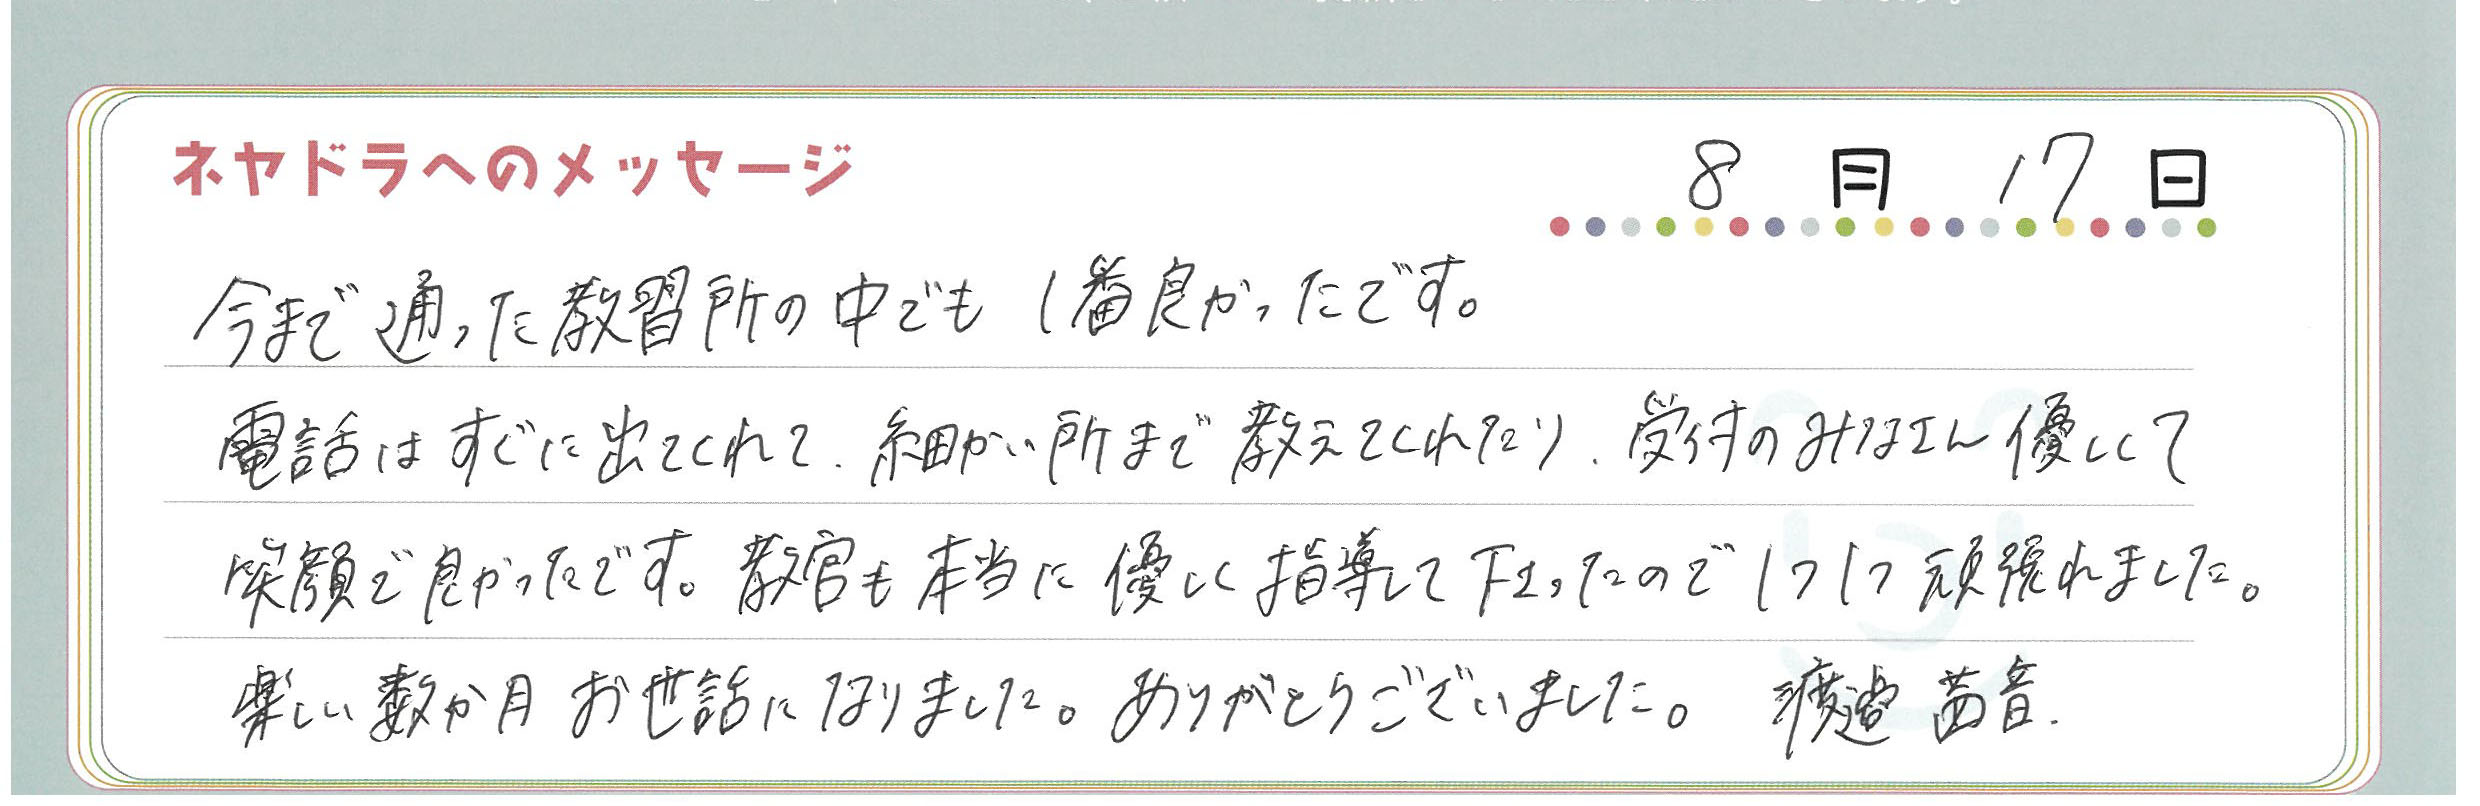 ネヤドラへのメッセージ
8月17日
今まで通った教習所の中でも1番良かったです。
電話はすぐに出てくれて、細かい所まで教えてくれたり、受付のみなさん優しくて
笑顔で良かったです。教官も本当に優しく指導して下さったので1つ1つ頑張れました。
楽しい数か月お世話になりました。ありがとうございました。 渡邉 茜音.